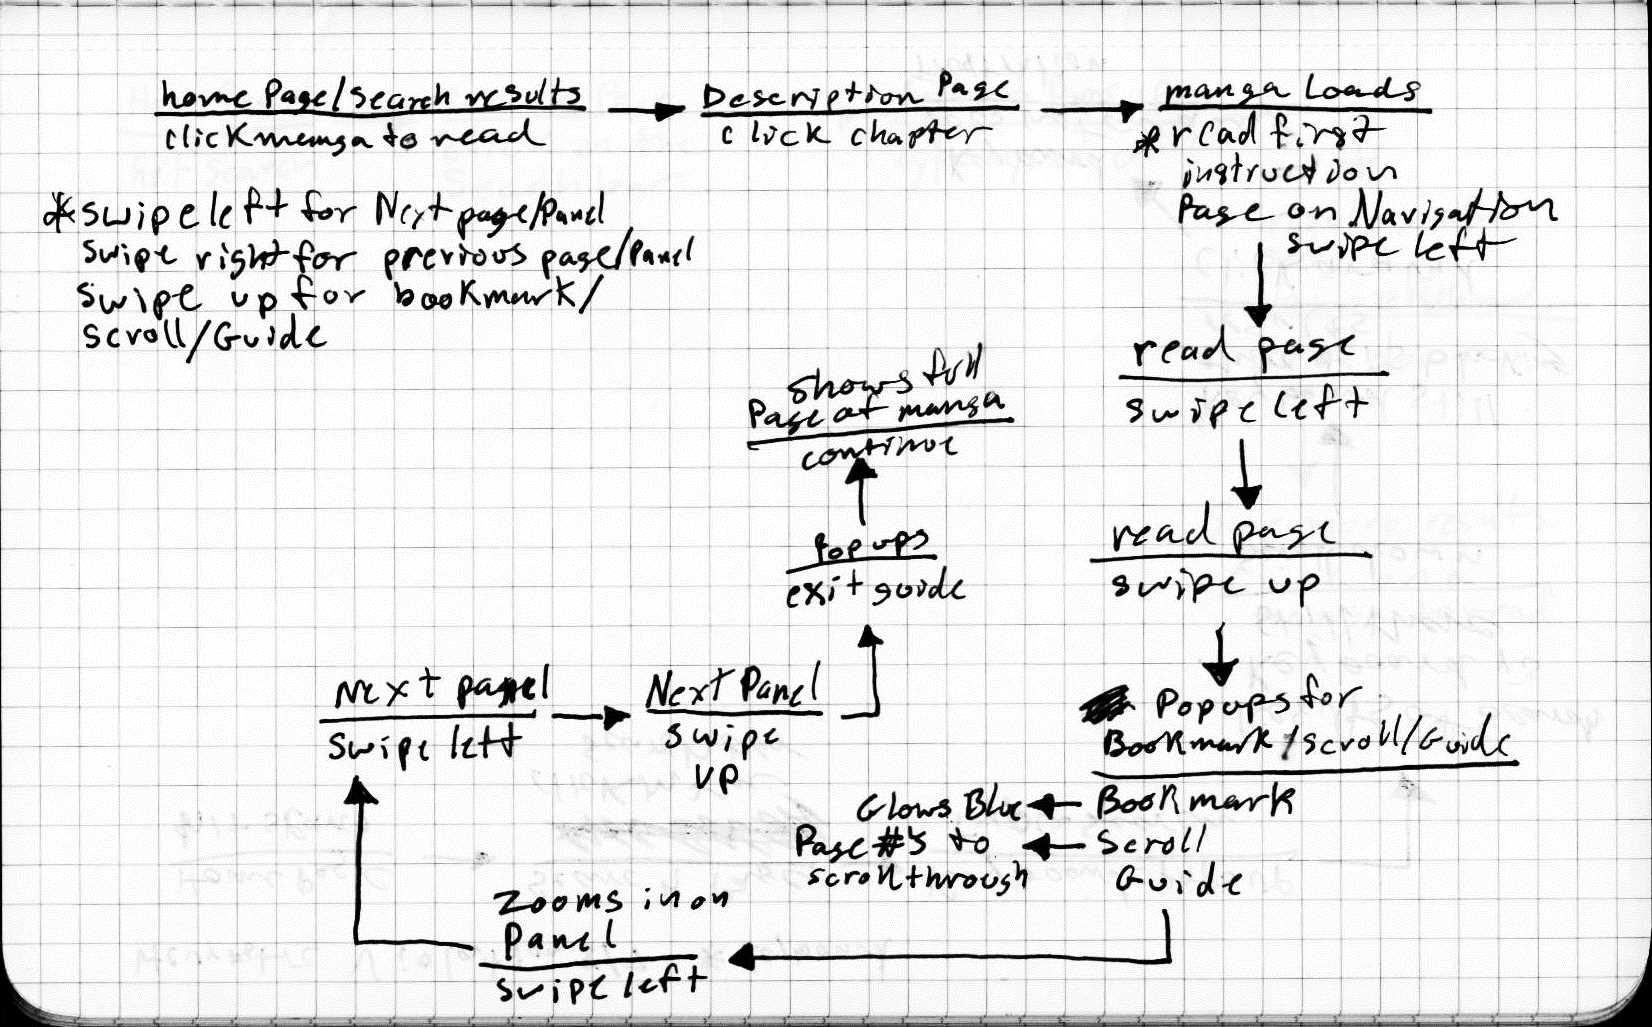 home Page/search results
click manga to read
Description Page
click chapter
manga Loads
*read first
instruction
Page on Navigation
swipe left
*swipe left for Next page/Panel
swipe right for previous page/Panel
swipe up for bookmark/
scroll/Guide
read page
swipe left
read page
swipe up
Popups for
Bookmark/scroll/Guide
Bookmark
Glows Blue
Scroll
Page #'s to
scroll through
Guide
Zooms in on
Panel
swipe left
Next panel
swipe left
Next Panel
swipe
up
Popups
exit guide
shows full
Page of manga
continue